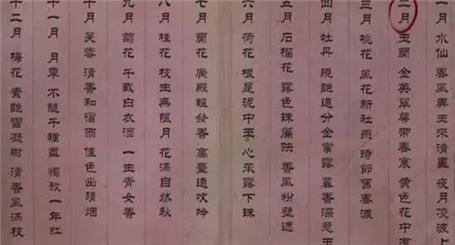 一月 水仙 春風弄玉來清晝 夜月凌波上
二月 玉蘭 金英翠萼帶春寒 黃色花中
三月 桃花 風花新社燕 時節舊春濃
四月 牡丹 曉艷遠分金掌露 暮香深惹玉
五月 石榴花 露色珠簾映 香風粉壁遮
六月 荷花 根是泥中玉 心承露下珠
七月 蘭花 廣殿輕發香 高臺遠吹吟
八月 桂花 枝生無限月 花滿自然秋
九月 菊花 千載白衣酒 一生青女香
十月 芙蓉 清香和宿雨 佳色出晴烟
十一月 月季 不隨千種盡 獨放一年紅
十二月 梅花 素艷雪凝樹 清香風滿枝